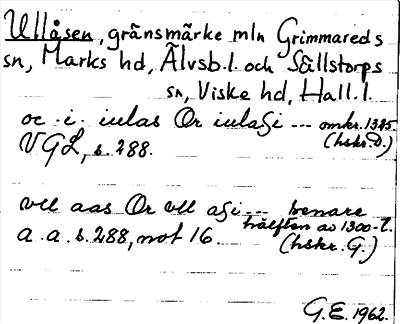 Ullåsen, gränsmärke mln Grimmareds
sn, Marks hd, Älvsb.l. och Sällstorps
sn, Viske hd, Hall.l.
oc .i. iulas Or iulasi --- omkr. 1325.
VGL, s. 288. (hskr. D.)
vll aas Or vll asi --- senare
hälften av 1300-t.
a.a. s. 288, not 16. (hskr. G.)
G.E. 1962.